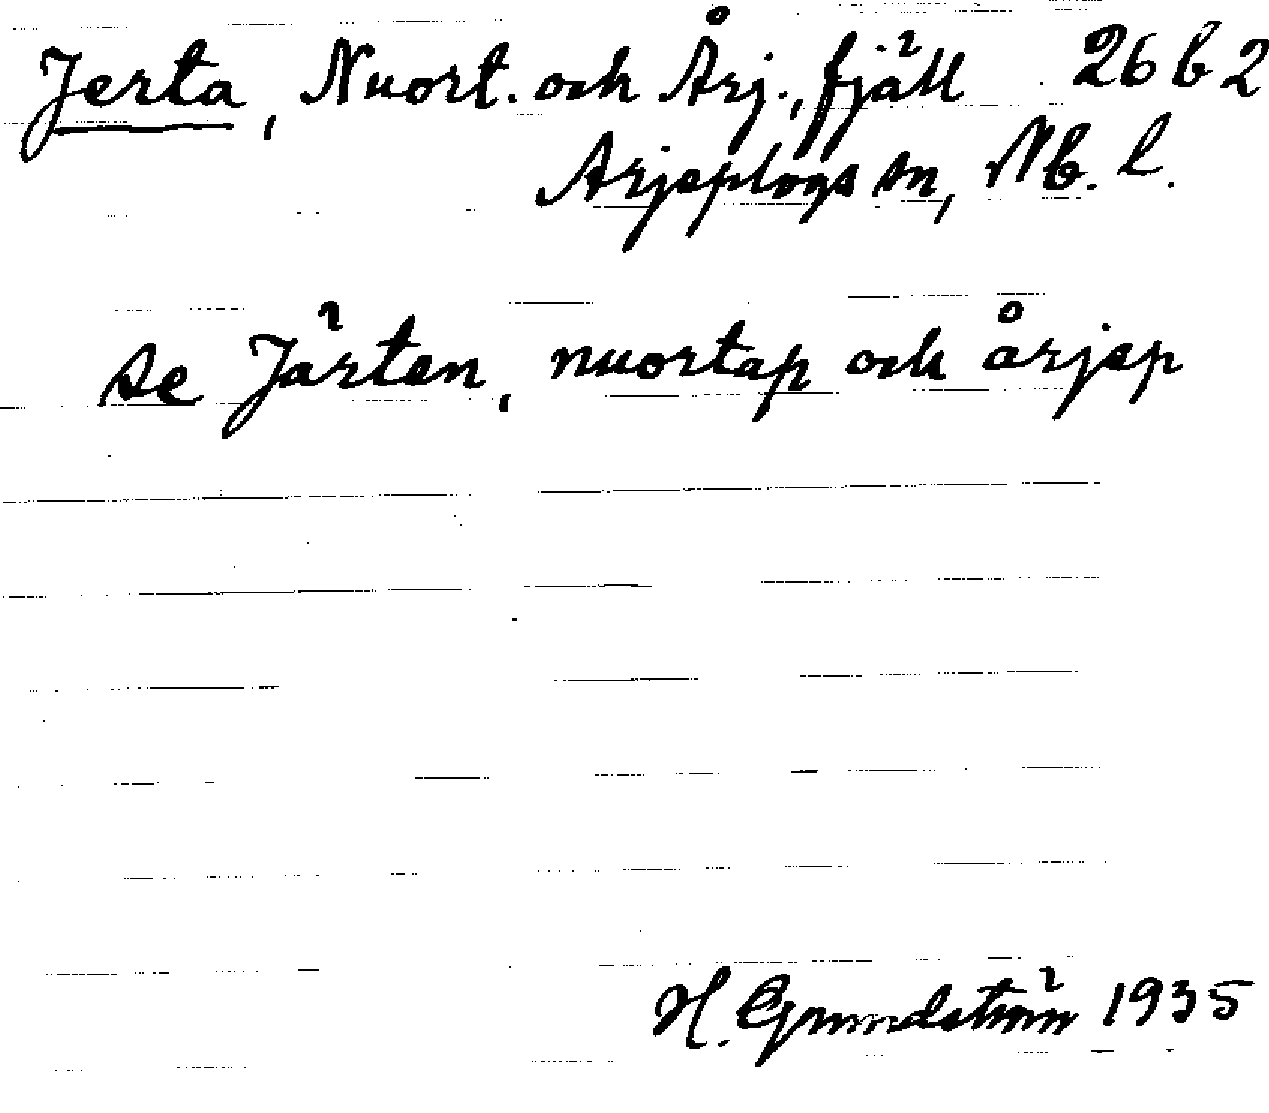 Jerta, Nuort. och Årj., fjäll 26 b 2
Arjeplogs sn, Nb. l.
se Järten, nuortap och årjep
H. Grundström 1935